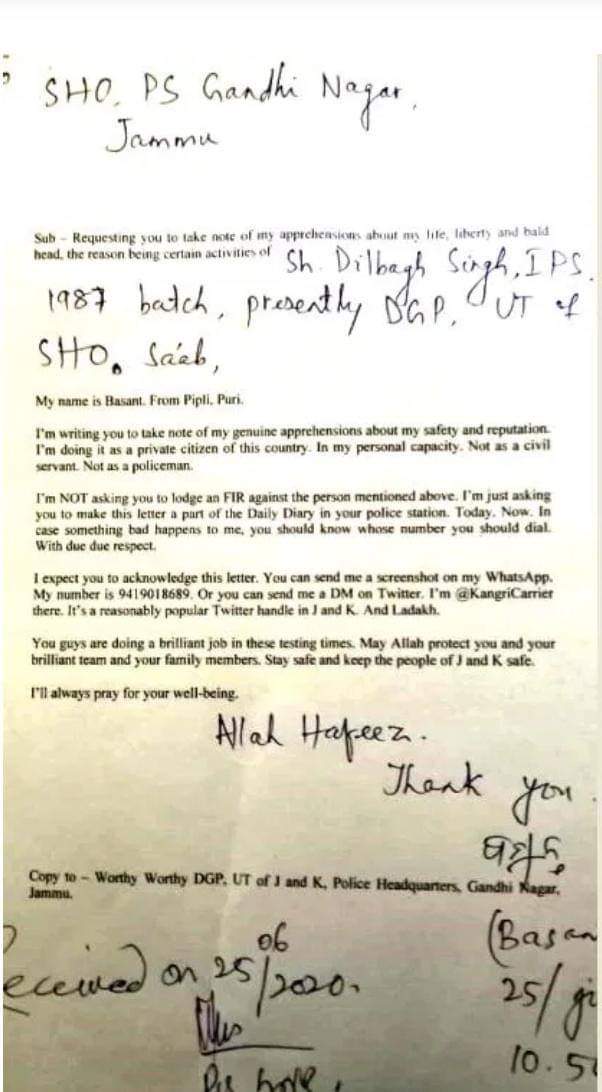 SHO, PS Gandhi Nagar,
Jammu
Sub – Requesting you to take note of my apprehensions about my life, liberty and bald
head, the reason being certain activities of Sh. Dilbagh Singh, IPS.
1987 batch, presently DGP, UT of
SHO, Sa'ab,
My name is Basant. From Pipli, Puri.
I'm writing you to take note of my genuine apprehensions about my safety and reputation.
I'm doing it as a private citizen of this country. In my personal capacity. Not as a civil
servant. Not as a policeman.
I'm NOT asking you to lodge an FIR against the person mentioned above. I'm just asking
you to make this letter a part of the Daily Diary in your police station. Today. Now. In
case something bad happens to me, you should know whose number you should dial.
With due due respect.
I expect you to acknowledge this letter. You can send me a screenshot on my WhatsApp.
My number is 9419018689. Or you can send me a DM on Twitter. I'm @KangriCarrier
there. It's a reasonably popular Twitter handle in J and K. And Ladakh.
You guys are doing a brilliant job in these testing times. May Allah protect you and your
brilliant team and your family members. Stay safe and keep the people of J and K safe.
I'll always pray for your well-being.
Allah Hafeez.
Thank you.
Copy to – Worthy Worthy DGP, UT of J and K, Police Headquarters, Gandhi Nagar,
Jammu.
(Basan
eceived on 25/06/2020.
25/
10.5